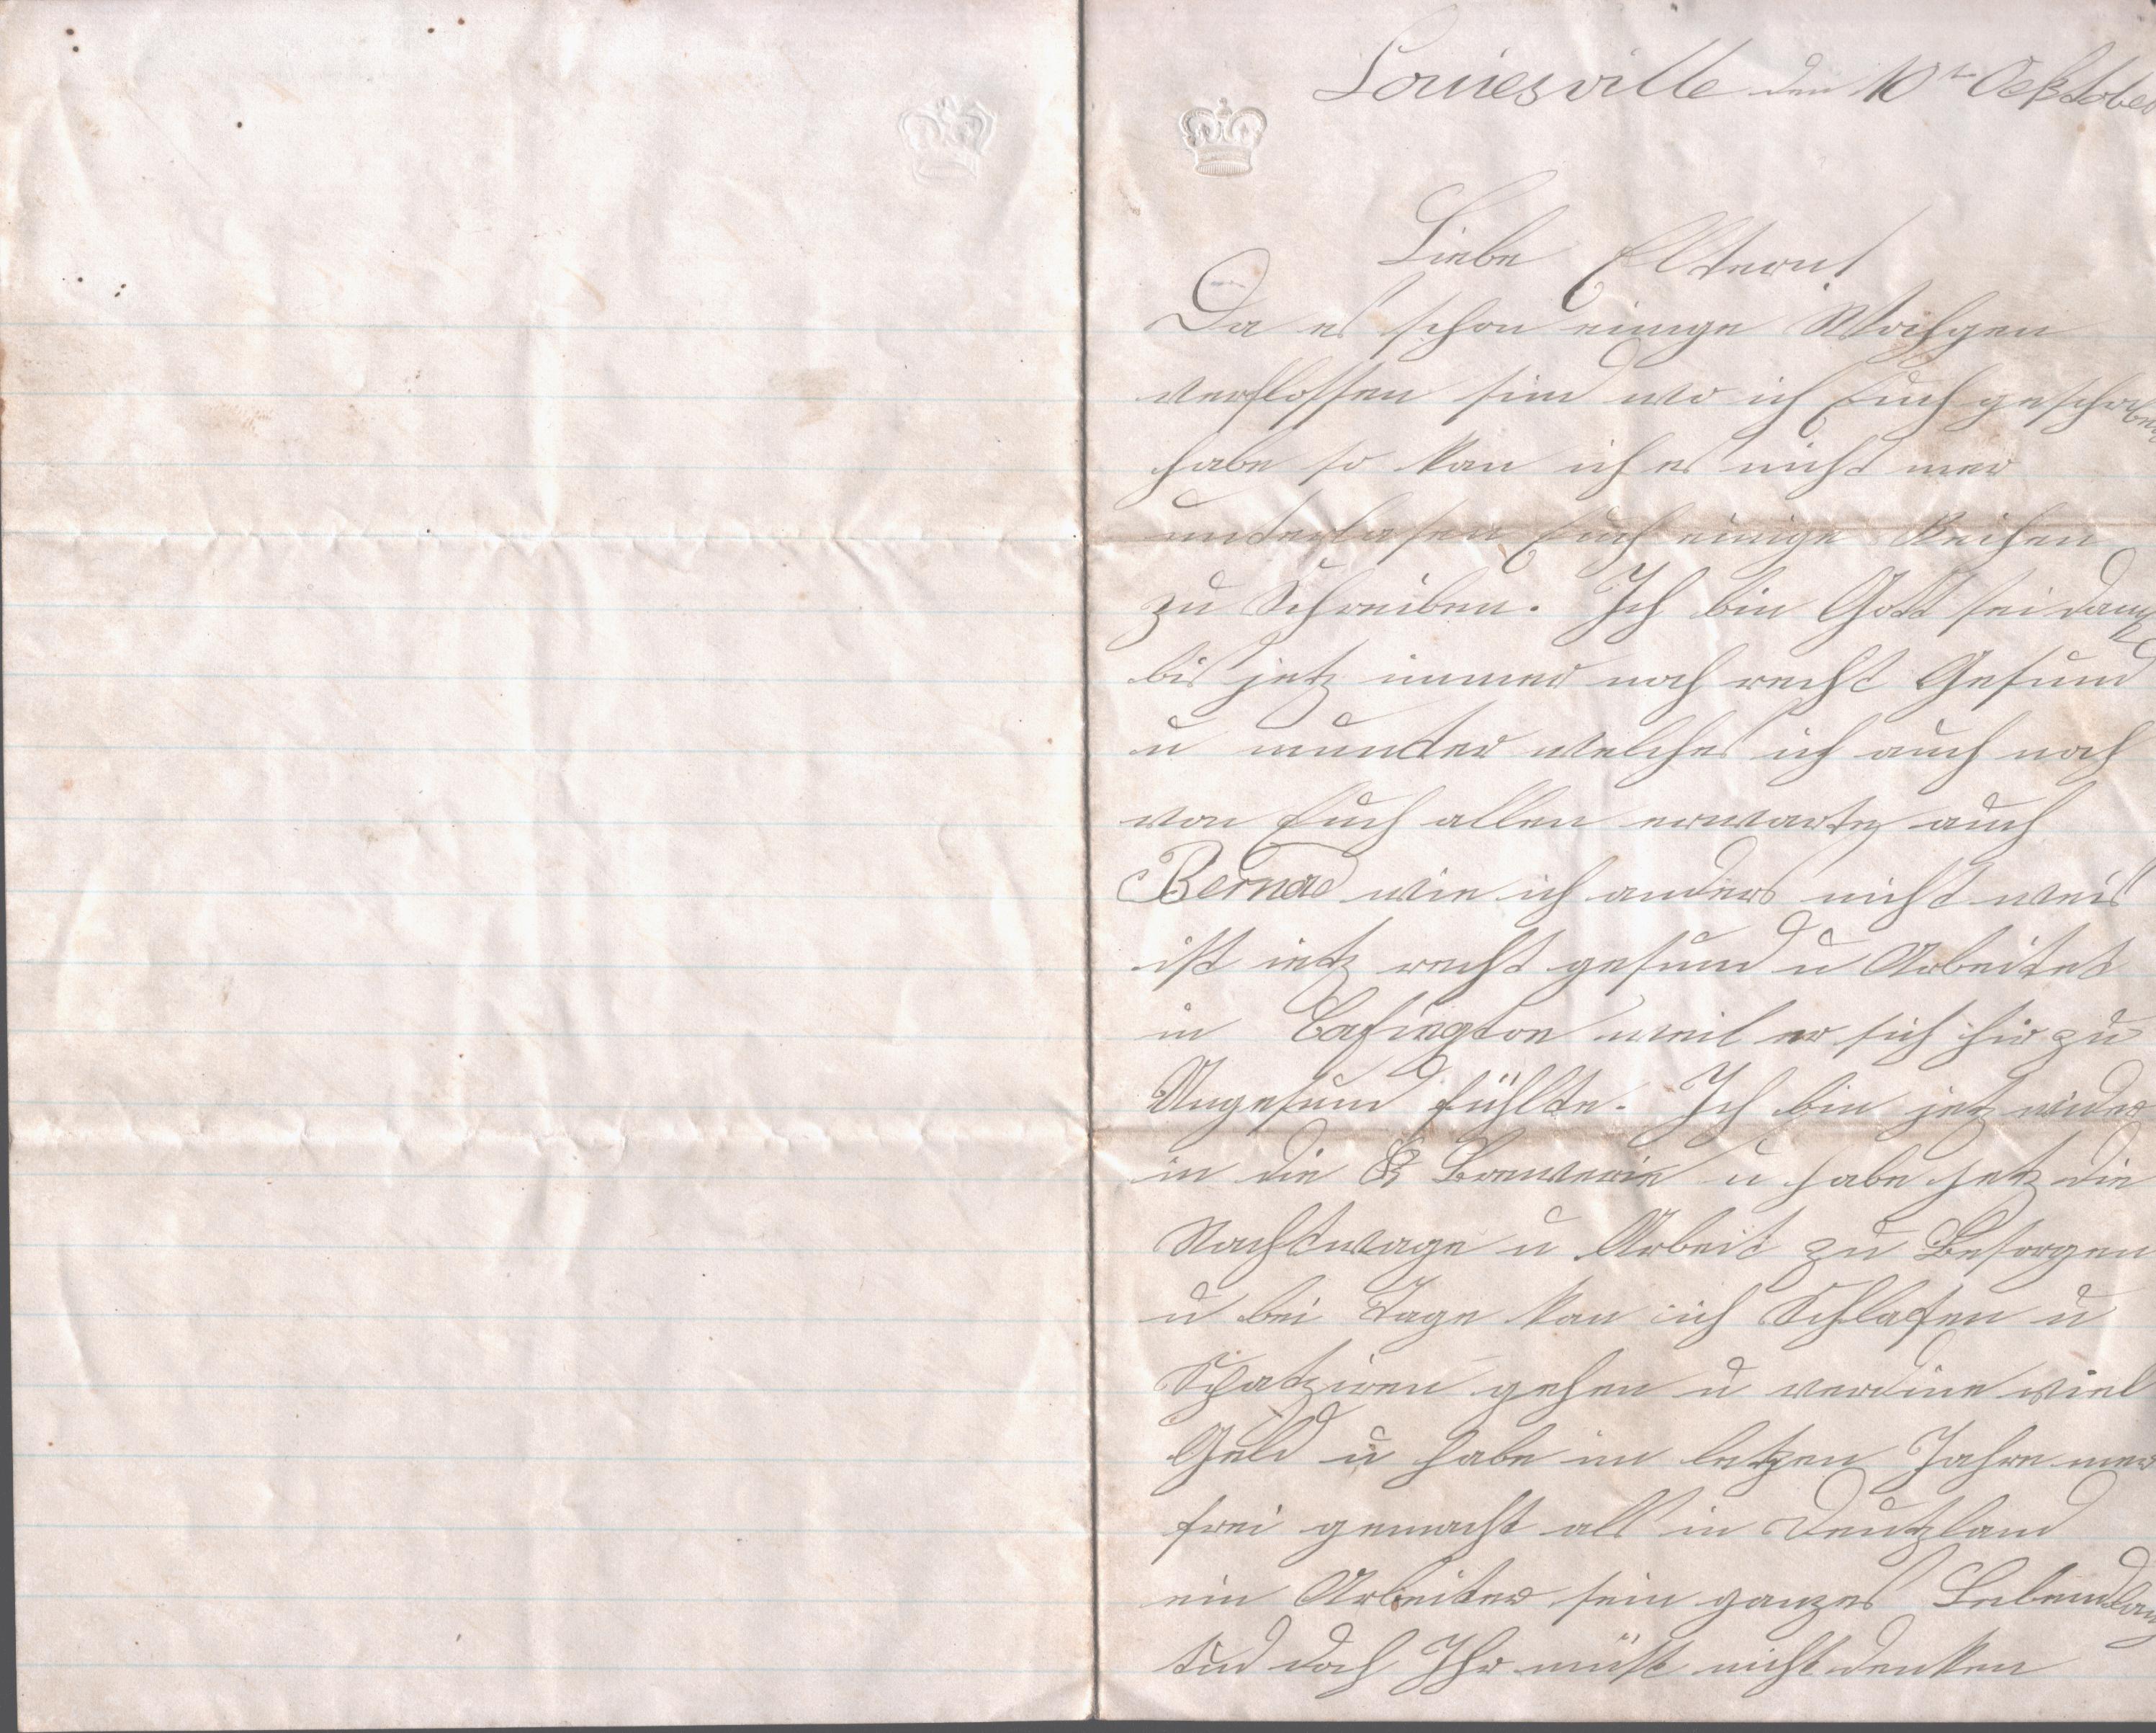 Louiesville den 10t Ocktober
Liebe Eltern!
Da es schon einige Wochgen
verflossen sind wo ich Euch geschrieben
habe so kan ich es nicht mer
unterlasen Euch einige Reihen
zu Schreiben. Ich bin Gott sei dank
bis jetz immer noch recht Gesund
u munter welches ich auch noch
von Euch allen erwarte auch
Bernad wie ich anders nicht weis
ist jetz recht gesund u Arbeitet
in Cafington weil er sich hir zu
Ungesund fühlte. Ich bin jetz wider
in die Brewerie u habe jetz die
Nachtwage u Arbeit zu Besorgen
u bei Tage kan ich Schlafen u
Spatziren gehen u verdine viel
Geld u habe im letzen Jahre mer
frei gemacht als in Deutzland
ein Arbeiter sein ganzes Lebendlang
tud doch Ihr müst nicht denken